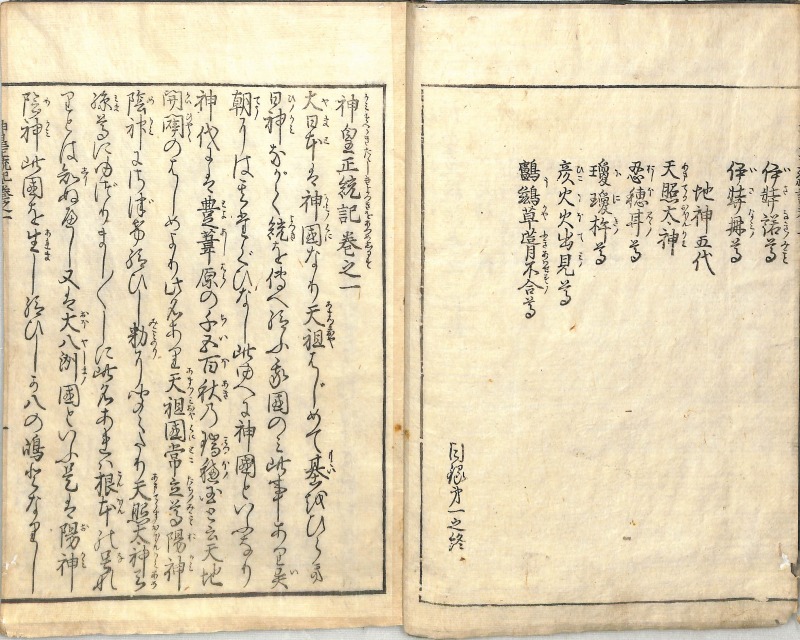 伊弉諾尊
伊弉冊尊
地神五代
天照太神
忍穂耳尊
瓊瓊杵尊
彦火火出見尊
鸕鷀草葺不合尊
目録第一之終
神皇正統記巻之一
大日本は神国なり天祖はじめて基をひらき
日神ながく統を伝へ給ふ我国のみ此事あり異
朝にはそのたぐひなし此ゆへに神国といふなり
神代には豊葦原の千五百秋乃瑞穂国と云天地
開闢のはじめより此名あり天祖国常立尊陽神
陰神にさづけ給ひし勅にきこえたり天照太神
孫尊にゆづりましましに此名あれば根本の号
りとはしりぬべし又は大八洲国といふ是は陽神
陰神此国を生し給ひしが八の嶋となりし